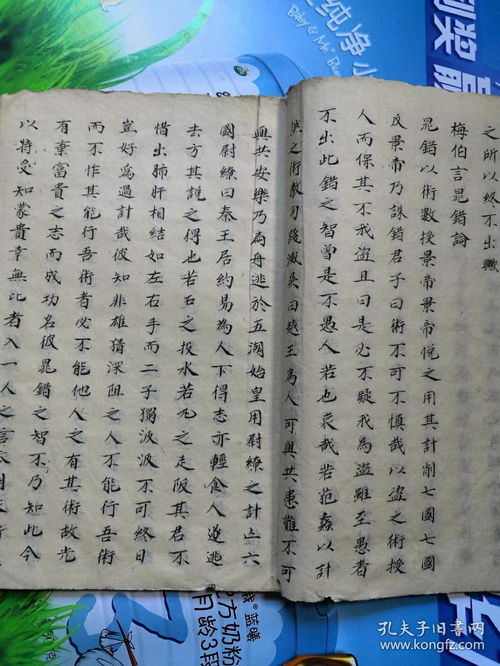 之所以終不出歟
梅伯言晁錯論
晁錯以術數授景帝景帝悅之用其計削七國七國
反景帝乃誅錯君子曰術不可不慎哉以盜之術授
人而保其不我盜且曰是必不疑我為盜雖至愚者
不出此錯之智曾是不愚人若也哀哉若范蠡以計
然之術教勾踐滅吳曰越王為人可與共患難不可
與共安樂乃扁舟逃於五湖始皇用尉繚之計亡六
國尉繚曰秦王居約易為人下得志亦輕食人遂逃
去方其說之得也若石之投水若丸之走阪其君不
惜出肺肝相結如左右手而二子獨汲汲不可終日
豈好為過計哉彼知非雄猜深阻之人不能行吾術
而不怍其能行吾術者必不能他人之有其術故光
有重富貴之志而成功名彼晁錯之智不乃知此今
以將受知蒙貴幸無比者入一人之言
纯净小
Baby & Me
奖
方奶粉
月龄3
蓝臻
孔夫子旧书网
kongfz.com